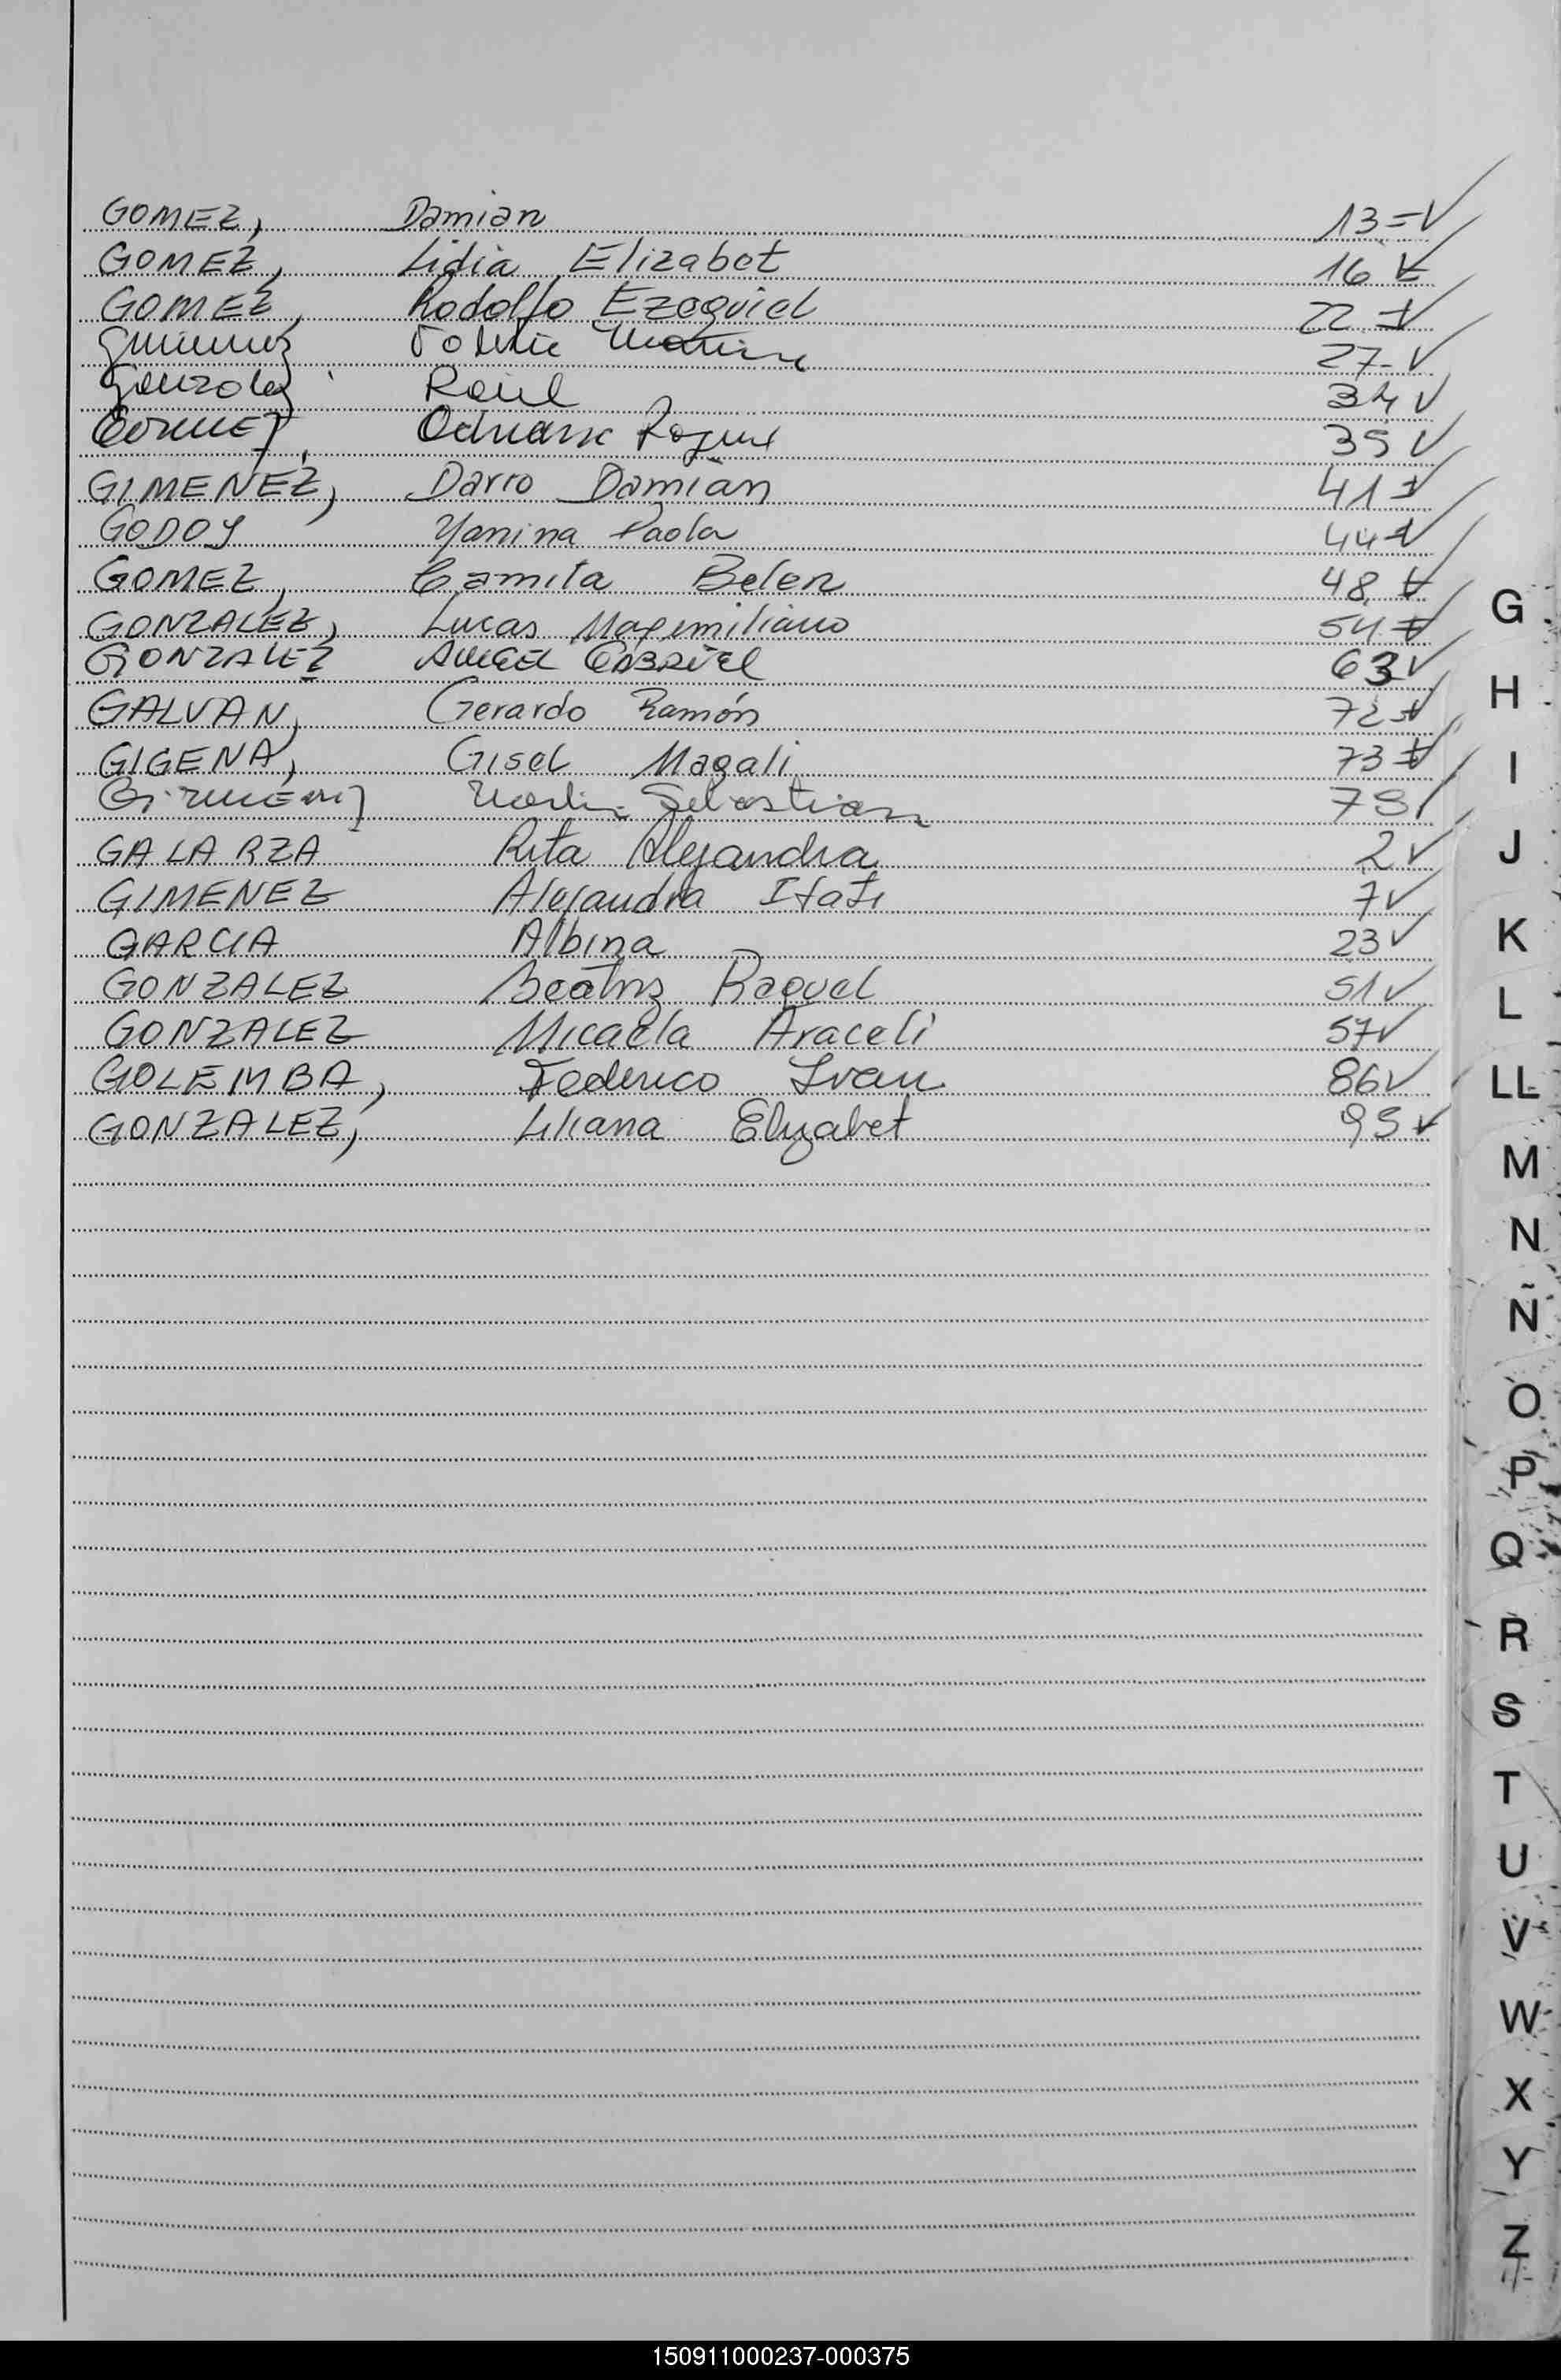 GOMEZ, Damian 13=✓
GOMEZ, Lidia Elizabet 16 ✓
GOMEZ, Rodolfo Ezequiel 22 ✓
Gimenez 27- ✓
Gonzalez Raúl 34 ✓
Gomez, Adriana Roque 35 ✓
GIMENEZ, Darío Damián 41 ✓
GODOY Yanina Paola 44 ✓
GOMEZ, Camila Belen 48 ✓
GONZALEZ, Lucas Maximiliano 54 ✓
GONZALEZ ANGEL GABRIEL 63 ✓
GALVAN, Gerardo Ramón 72 ✓
GIGENA, Gisel Magali 73 ✓
Gimenez Martin Sebastian
GALARZA Rita Alejandra 2 ✓
GIMENEZ Alejandra Itati 7 ✓
GARCIA Albina 23 ✓
GONZALEZ Beatriz Raquel 51 ✓
GONZALEZ Micaela Araceli 57 ✓
GOLEMBA, Federico Ivan 86 ✓
GONZALEZ, Liliana Elizabet 95 ✓
G
H
I
J
K
L
LL
M
N
Ñ
O
P
Q
R
S
T
U
V
W
X
Y
Z
150911000237-000375